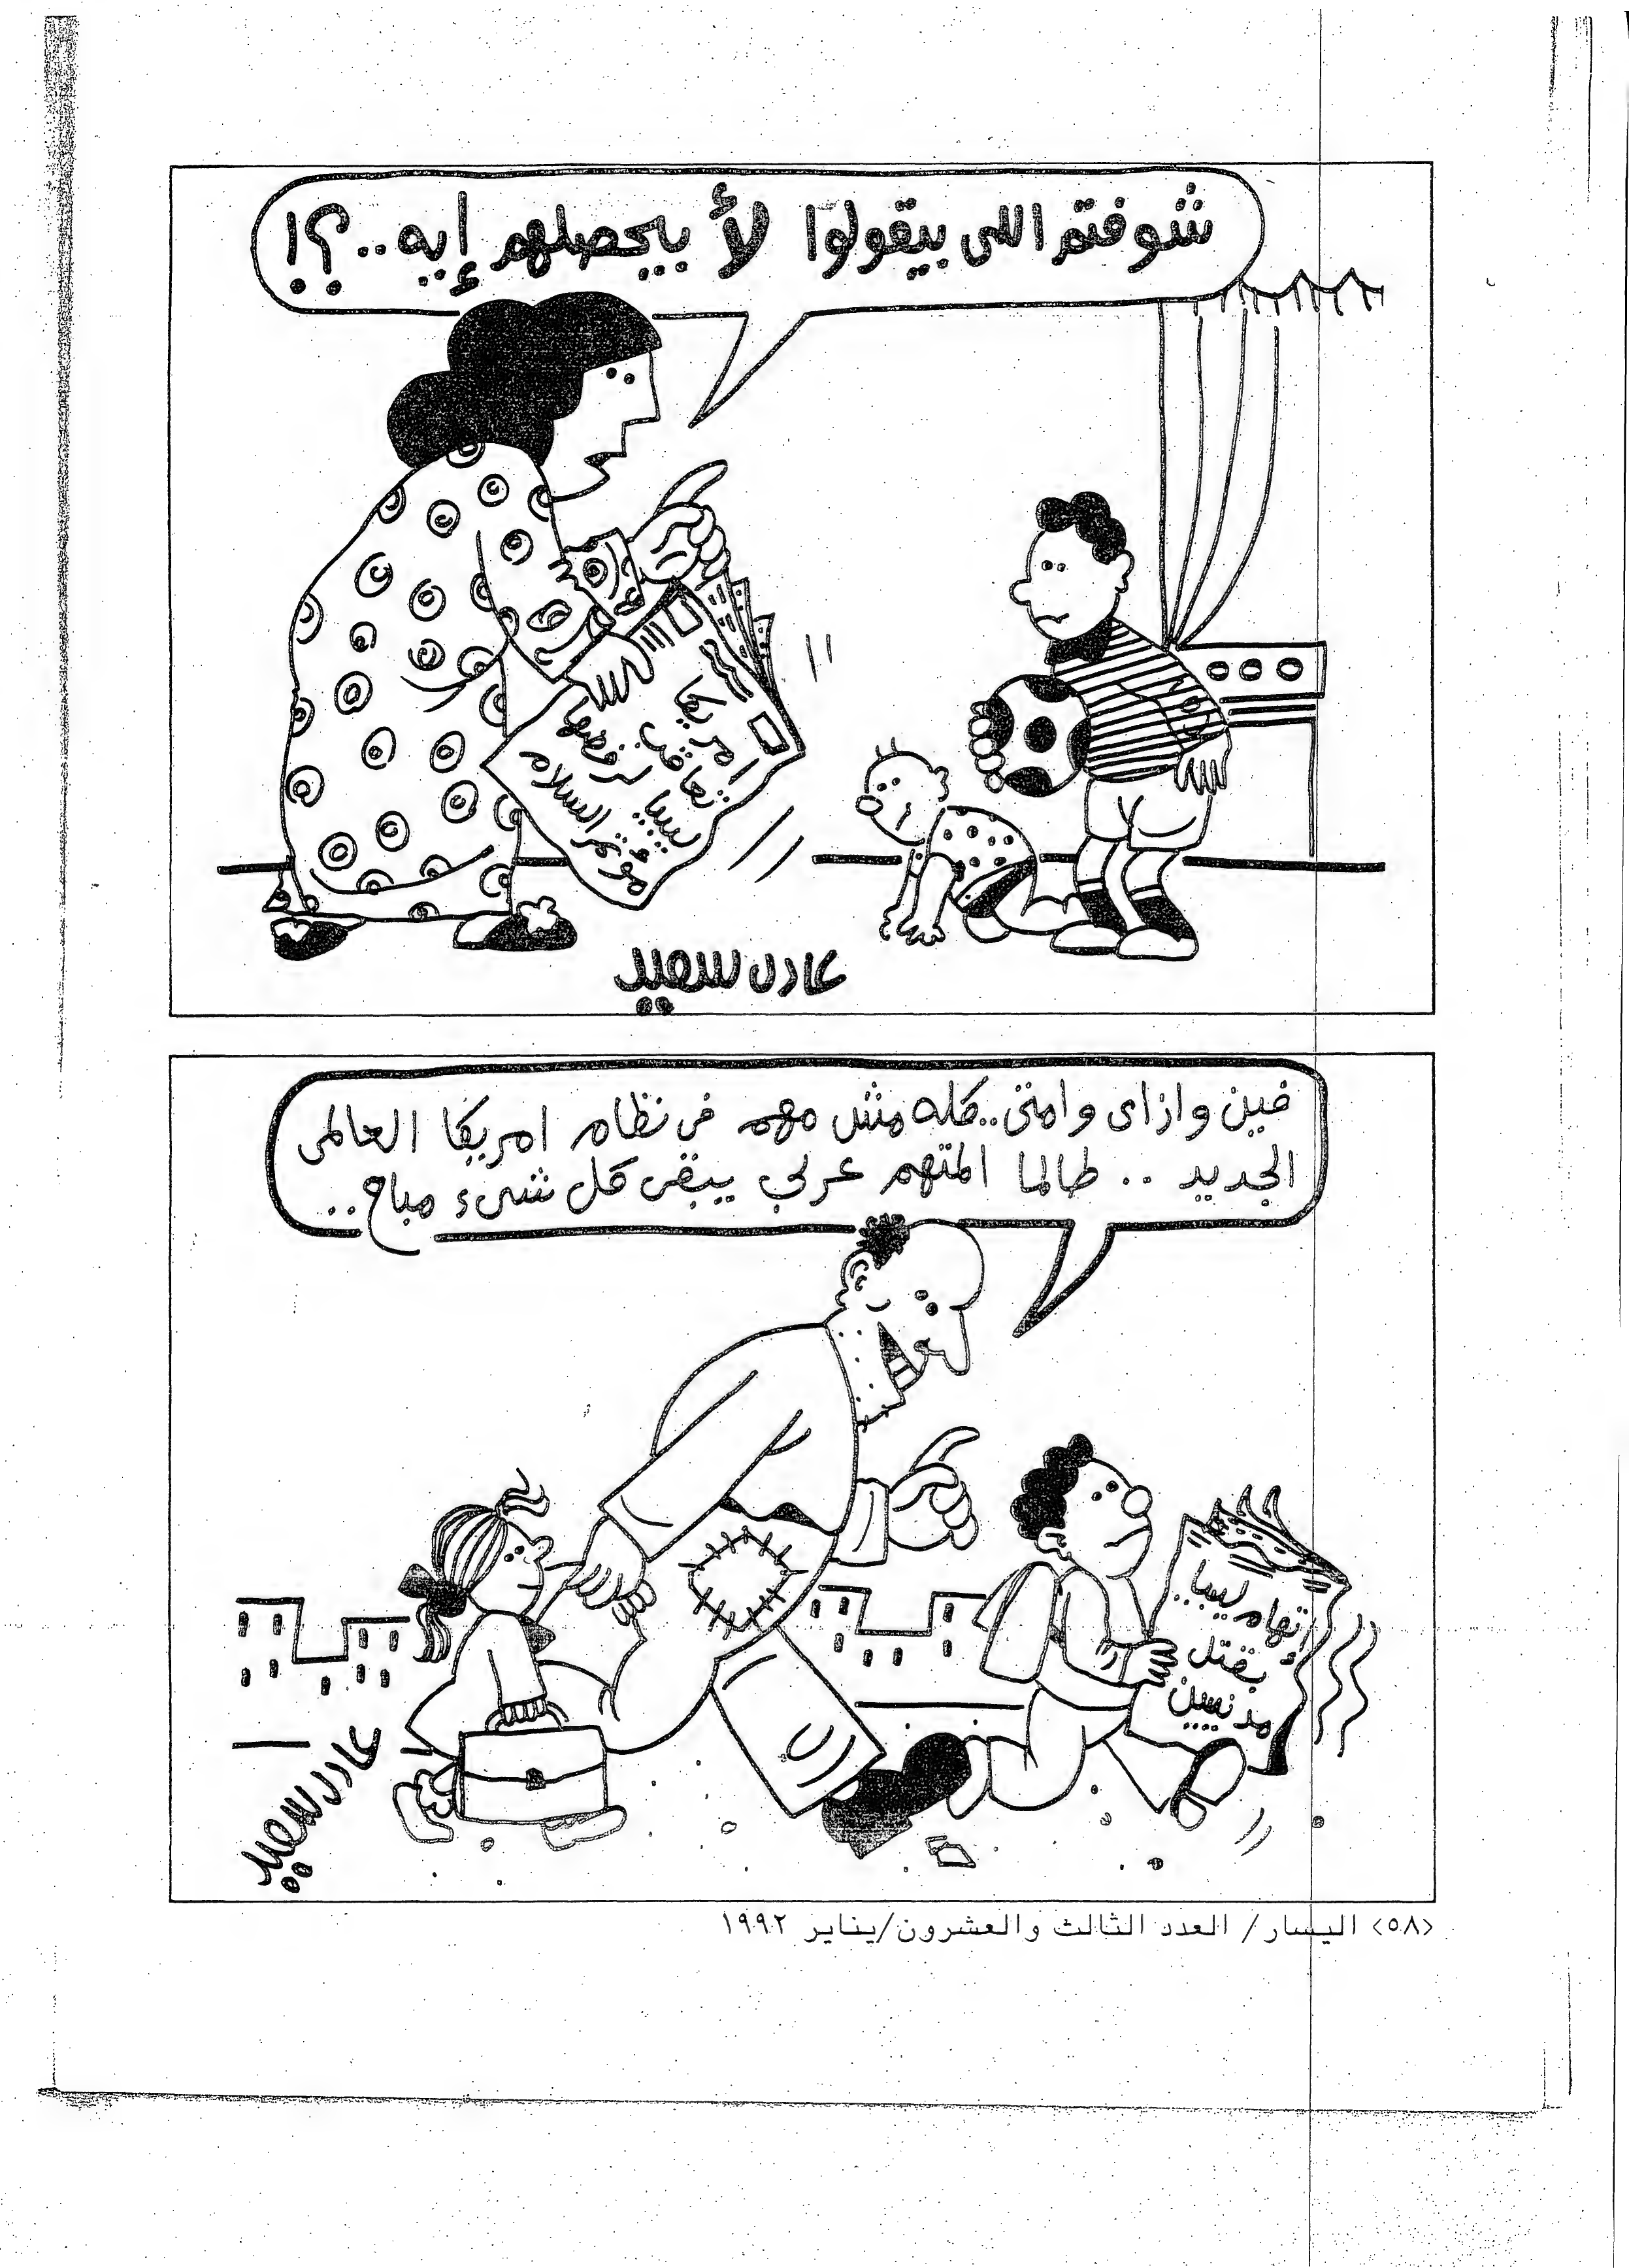 شوفتم اللى بيقولوا لأ بيحصلهم إيه..؟!
أمريكا
تعاقب
ليبيا لرفضها
مؤتمر السلام
عادل سعيد
فين وازاى وامتى..كله مش مهم فى نظام امريكا العالمى
الجديد .. طالما المتهم عربى يبقى كل شىء مباح..
اتهام ليبيا
بقتل
مدنيين
عادل سعيد
<٥٨> اليسار/ العدد الثالث والعشرون/يناير ١٩٩٢